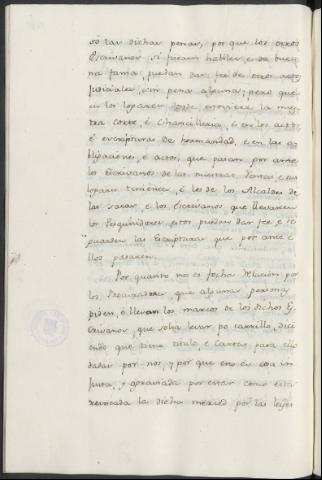 so las dichas penas, por que los otros
Escrivanos si fueren habiles, e de bue-
na fama, puedan dar fee de otros actos
Judiciales, sin pena alguna; pero que
en los logares donde estoviere la nues-
tra Corte, é Chancilleria, é en los acto
é escripturas de hermandad, é en las o-
bligaciones, é actos, que pasan por ante
los Escrivanos de las nuestras Rentas, e en
logares tenientes, é los de los Alcaldes de
las sacas, e los Escrivanos que llevaren
los Pesquiridores puedan dar fee, e se
guarden las Escripturas que por ante e-
llos pasaren.
Por quanto nos es fecha relacion por
los Procuradores que algunas personas
piden, é llevan los marcos de los dichos Es-
crivanos, que solia levar po carrillo, dici-
endo que tiene titulo, é Cartas para ello
dadas por nos, y por que esto es cosa in-
justa, y agraviada por estar como está
revocada la dicha merced por las leyes